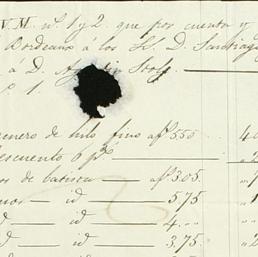 V. M. nos 1 y 2. que por cuenta y
Bordeaux á los S. D. Santiago
á D.
o 1.
enero de hilo fino a f 550
escuento 6 p%
os de batista — a f 3.05
nos — id — 5,75
id — 4...
d — id — 3,75